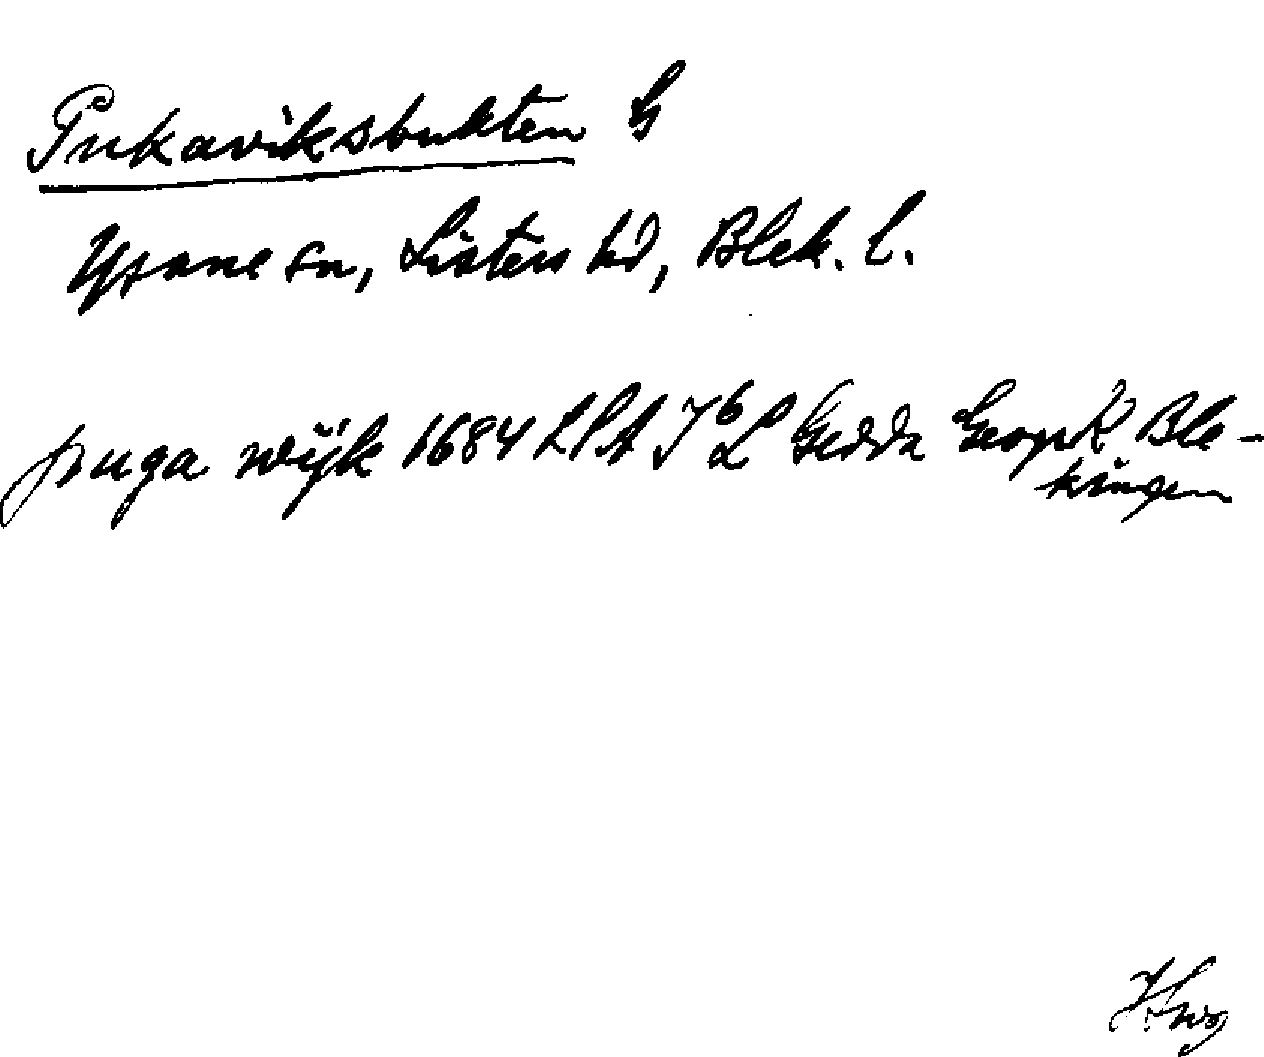 Pukaviksbukten G
Ysane sn, Listers hd, Blek. l.
puga wijk 1684 LSA I 6 L Gedda Geogr K Ble-
kingen